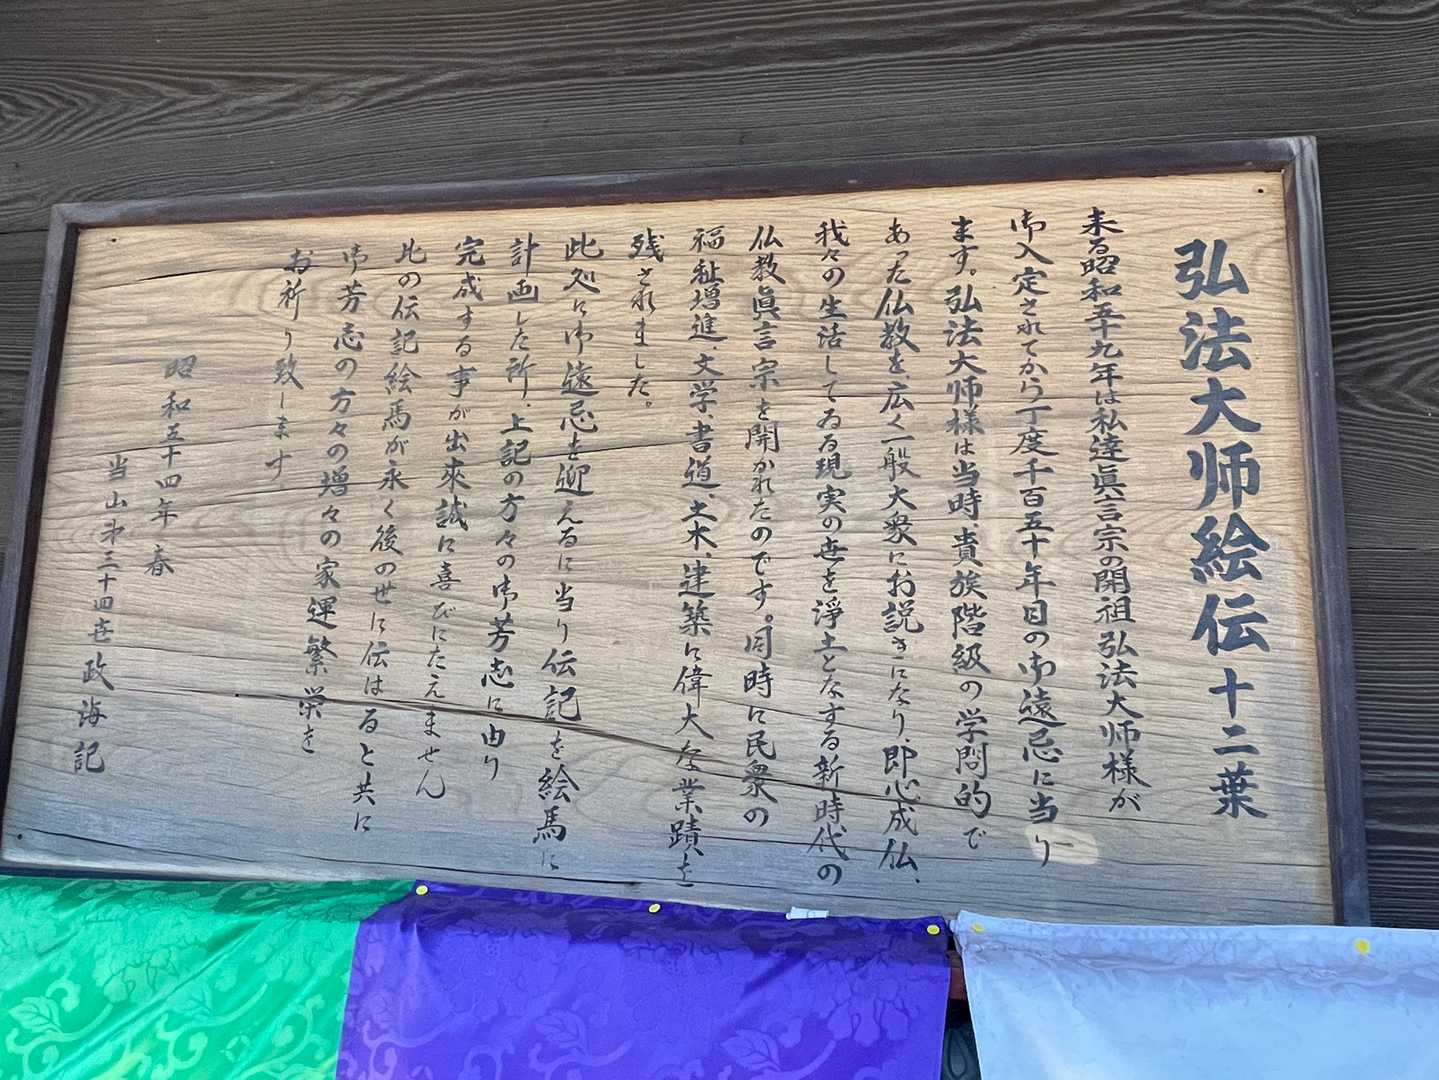 弘法大师絵伝十二葉
来る昭和五十九年は私達眞言宗の開祖弘法大师様が
御入定されてから丁度千百五十年目の御遠忌に当り
ます。弘法大师様は当時、貴族階級の学問的で
あった仏教を広く一般大衆にお説きになり、即心成仏、
我々の生活してゐる現実の世を淨土となする新時代の
仏教眞言宗を開かれたのです。同時に民衆の
福祉増進、文学、書道、土木、建築に偉大な業蹟を
残されました。
此処に御遠忌を迎えるに当り伝記を絵馬に
計画した所、上記の方々の御芳志に由り
完成する事が出来誠に喜びにたえません
此の伝記絵馬が永く後の世に伝はると共に
御芳志の方々の増々の家運繁栄を
お祈り致します
昭和五十四年春
当山才三十四世政海記